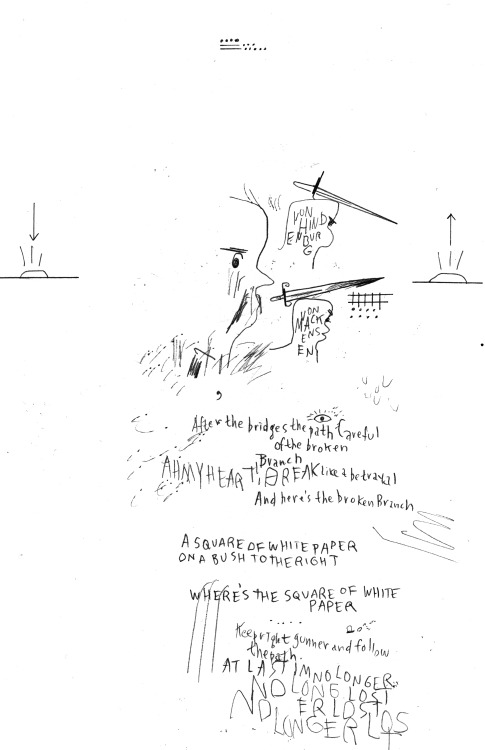 VON
HIND
ENBUR
G
VON
MACK
ENS
EN
After the bridges the path Careful
of the broken
Branch
AH MY HEART! BREAK like a betrayal
And here's the broken Branch
A SQUARE OF WHITE PAPER
ON A BUSH TO THE RIGHT
WHERE'S THE SQUARE OF WHITE
PAPER
Keep right gunner and follow
the path.
AT LAST IM NO LONGER
NO LONG LOST
ER LOST
NO LONGER LOS